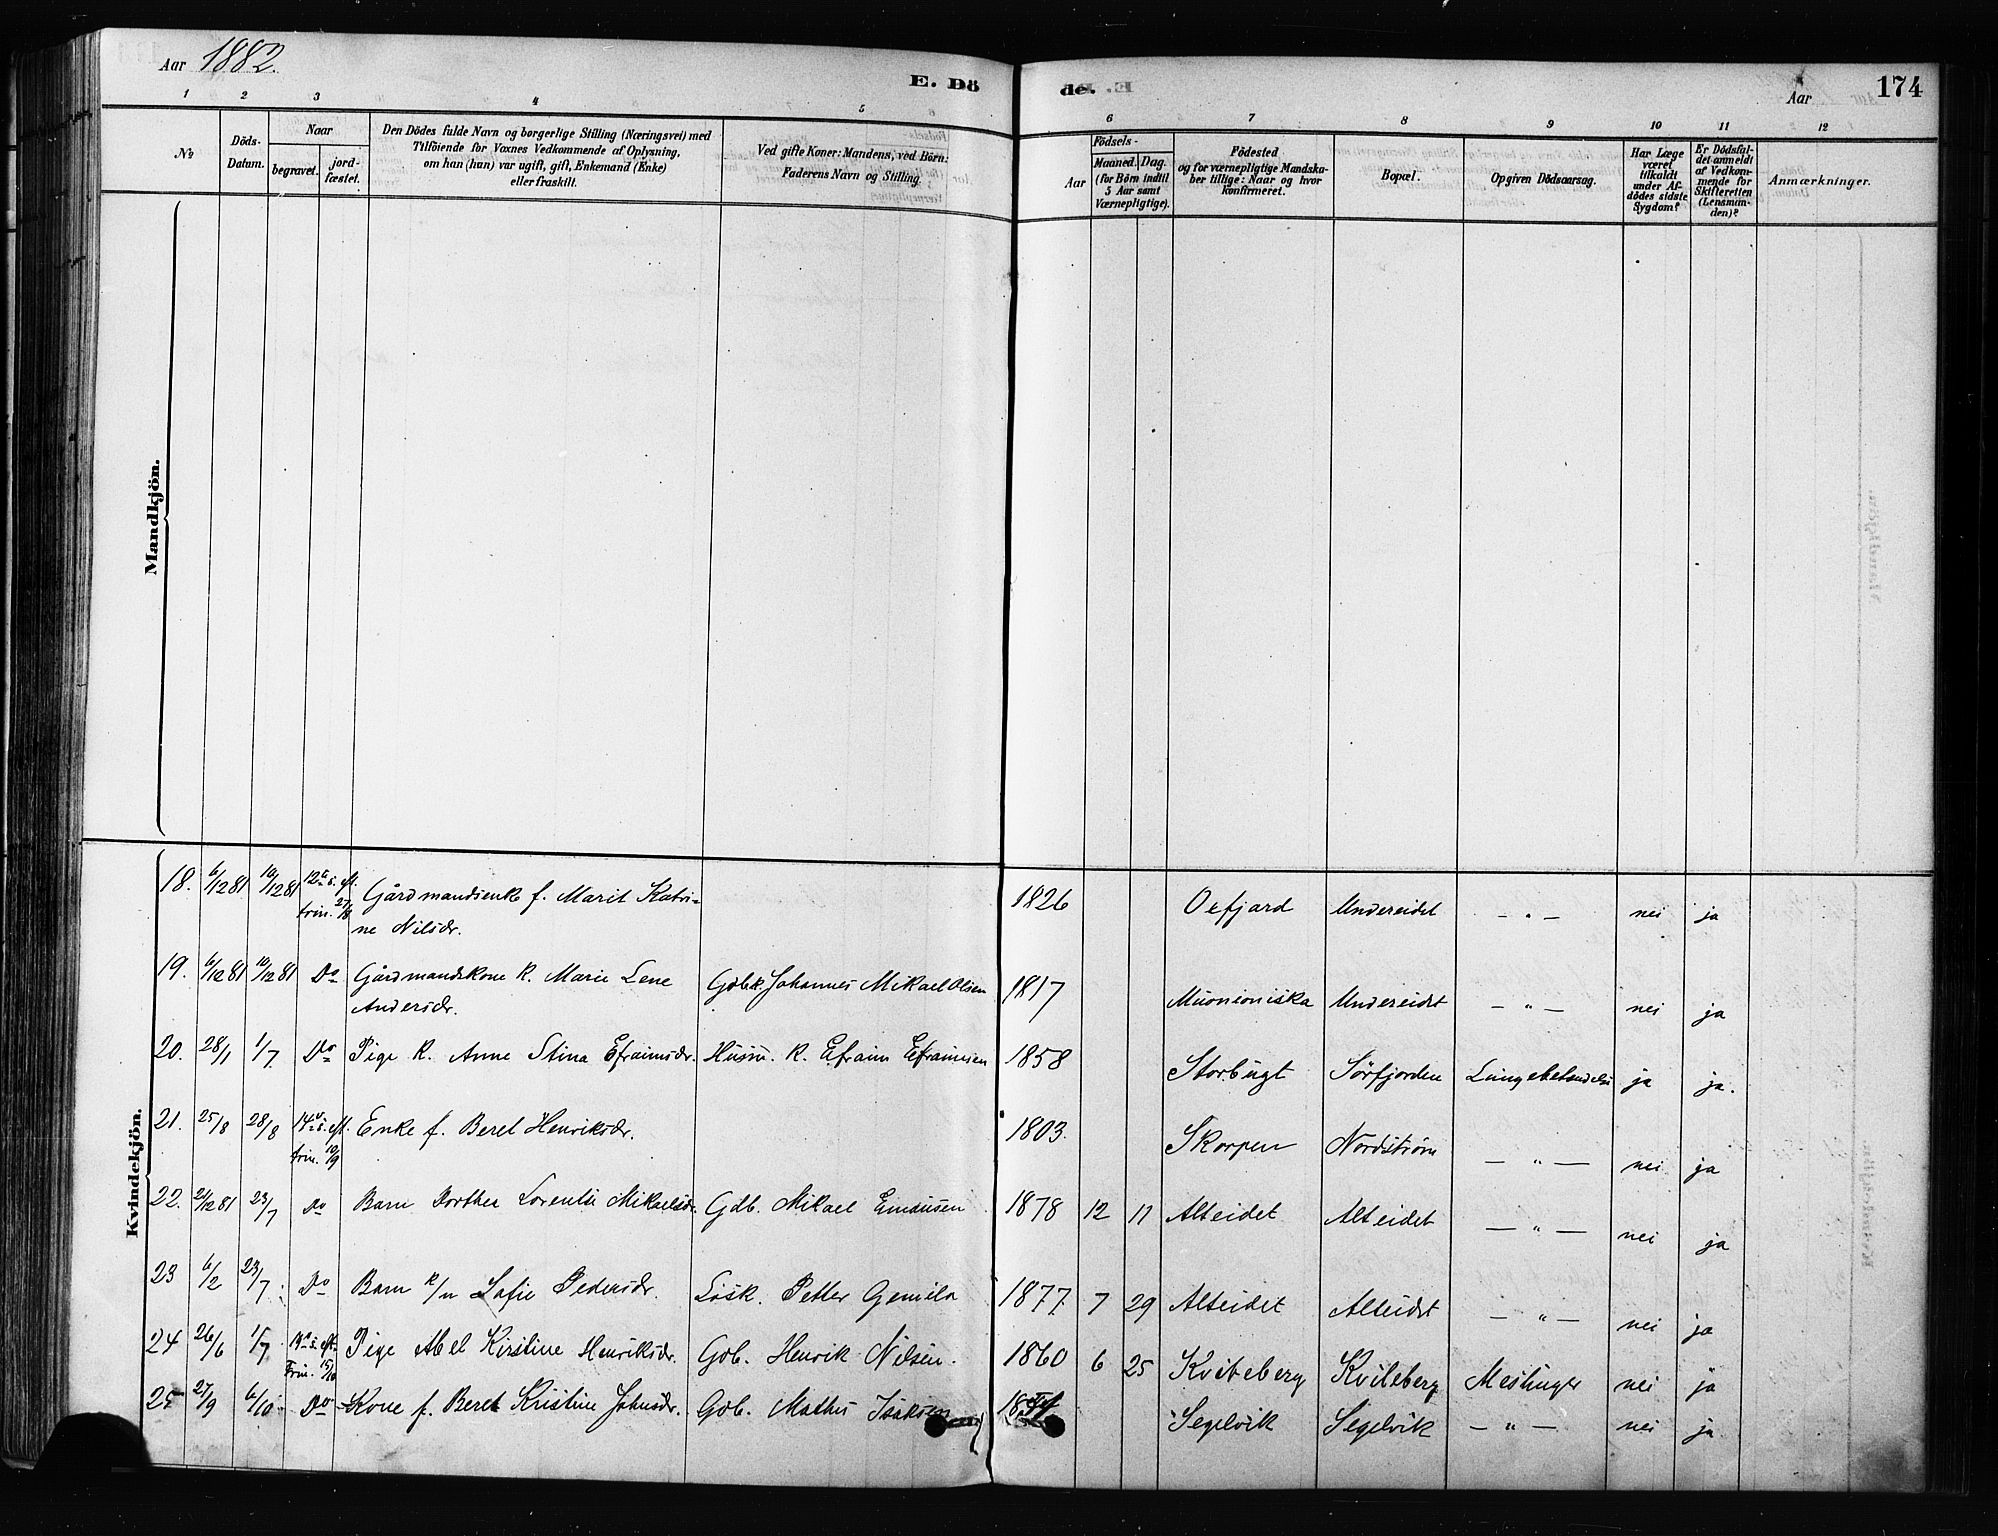 Aar 1882.
E. Dö
de.
174
Aar
1 2 3 4 5
6 7 8 9 10 11 12
No
Döds-
Datum.
Naar
begravet.
jord-
fæstet.
Den Dödes fulde Navn og borgerlige Stilling (Næringsvei) med
Tilföiende for Voxnes Vedkommende af Oplysning,
om han (hun) var ugift, gift, Enkemand (Enke)
eller fraskilt.
Ved gifte Koner: Mandens, ved Börn:
Faderens Navn og Stilling.
Födsels-
Aar
Maaned. Dag.
(for Börn indtil
5 Aar samt
Værnepligtige).
Födested
og for værnepligtige Mandska-
ber tillige: Naar og hvor
konfirmeret.
Bopæl.
Opgiven Dödsaarsag.
Har Læge
været
tilkaldt
under Af-
dödes sidste
Sygdom?
Er Dödsfal-
det anmeldt
af Vedkom-
mende for
Skifteretten
(Lensman-
den)?
Anmærkninger.
Mandkjön.
Kvindekjön.
18. 6/12 81 10/12 81 12te s. eft. Gårdmandsenke f. Marit Katri- 1826 Oxfjord Undereidet — " — nei ja
trin. 27/8 ne Nilsdr.
19. 6/12 81 10/12 81 Do Gårdmandskone k. Marie Lene Gdbk. Johannes Mikael Olsen 1817 Muonioniska Undereidet — " — nei ja
Andersdr.
20. 28/1 1/7 Do Pige k. Anne Stina Efraimsdr. Husm. k. Efraim Efraimsen 1858 Storbugt Sörfjorden Lungebetændelse ja ja.
21. 25/8 28/8 14de s. eft. Enke f. Beret Henriksdr. 1803. Skorpen Nordström — " — nei ja
trin. 10/9
22. 21/12 81 23/7 Do Barn Dorthea Lorentse Mikaelsdr. Gdb. Mikael Emausen 1878 12 17 Alteidet Alteidet — " — nei ja
23 6/2 23/7. Do Barn k/n Sofie Pedersdr. Lösk. Petter Gemila 1877. 7 29 Alteidet Alteidet — " — nei ja
24 26/6 1/7 19de s. eft. Pige Abel Kirstine Henriksdr. Gdb. Henrik Nilsen. 1860 6 25 Kviteberg Kviteberg Meslinger nei ja
Trin. 15/10
25 27/9 6/10 Do Kone f. Beret Kristine Johnsdr. Gdb. Mathis Isaksen 18 Segelvik Segelvik — " — nei ja